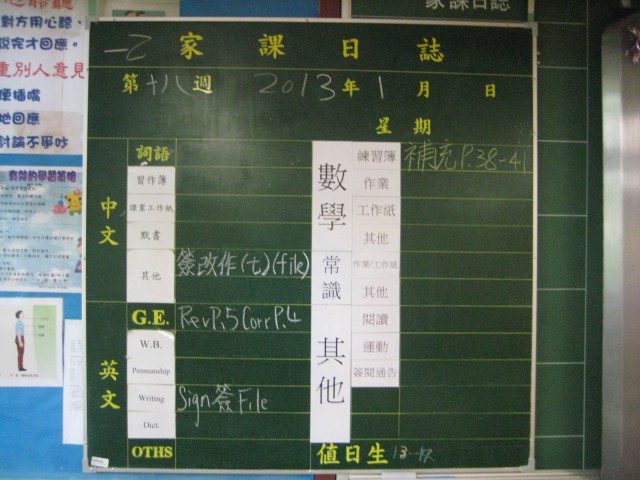 家課日誌
一乙 家課日誌
第十八週 2013年1月 日
星期
詞語
習作簿
課業工作紙
默書
其他 簽改作(七)(file)
中文
G.E. Rev P.5 Corr P.4
W.B.
Penmanship
Writing Sign簽File
Dict.
英文
OTHS
數學
練習簿 補充P.38-41
作業
工作紙
其他
常識
作業/工作紙
其他
其他
閱讀
運動
簽閱通告
值日生
對方用心聽、
說完才回應。
重別人意見
便插嘴
地回應
討論不爭吵